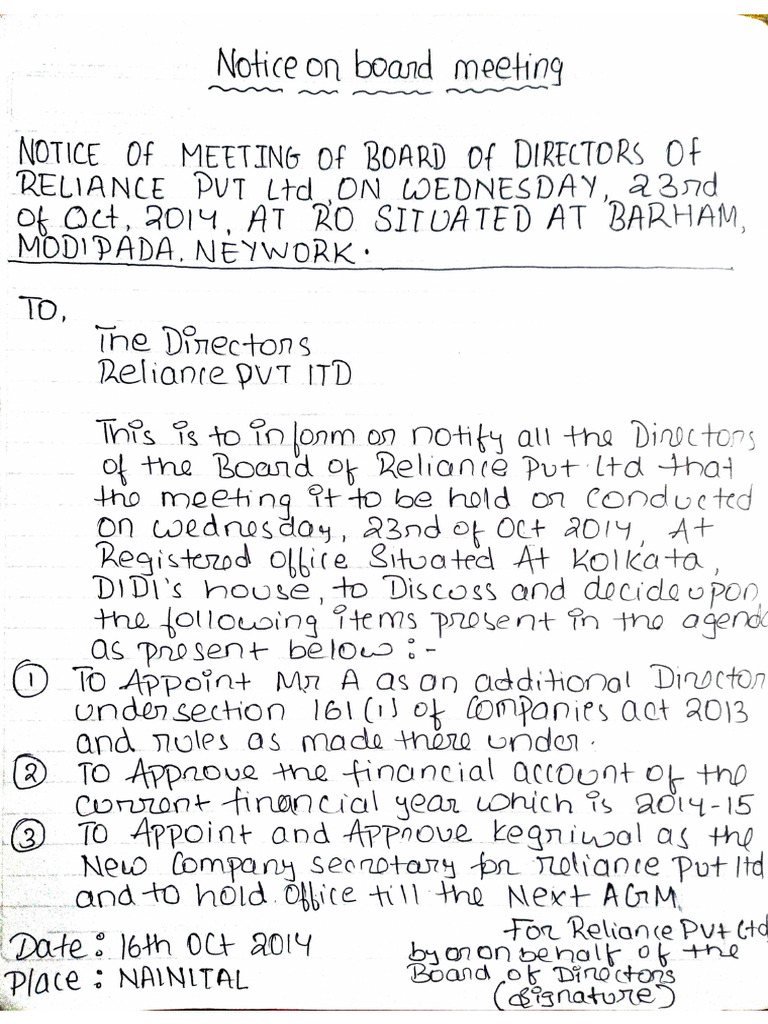 Notice on board meeting
NOTICE OF MEETING OF BOARD OF DIRECTORS OF
RELIANCE PVT Ltd, ON WEDNESDAY, 23rd
of Oct, 2014, AT RO SITUATED AT BARHAM,
MODIPADA. NEYWORK.
TO,
The Directors
Reliance PVT lTD
This is to inform or notify all the Directors
of the Board of Reliance Pvt Ltd that
the meeting it to be held or conducted
on wednesday, 23rd of Oct 2014, At
Registered Office Situated At Kolkata,
DIDI's house, to Discuss and decide upon
the following items present in the agenda
as present below :-
① To Appoint Mr A as an additional Director
undersection 161(1) of Companies act 2013
and rules as made there under.
② To Approve the financial account of the
current financial year which is 2014-15
③ To Appoint and Approve kegriwal as the
New Company secretary for reliance Pvt ltd
and to hold office till the Next AGM.
For Reliance Pvt Ltd
Date : 16th Oct 2014
by or on behalf of the
Board of Directors
Place : NAINITAL
(Signature)